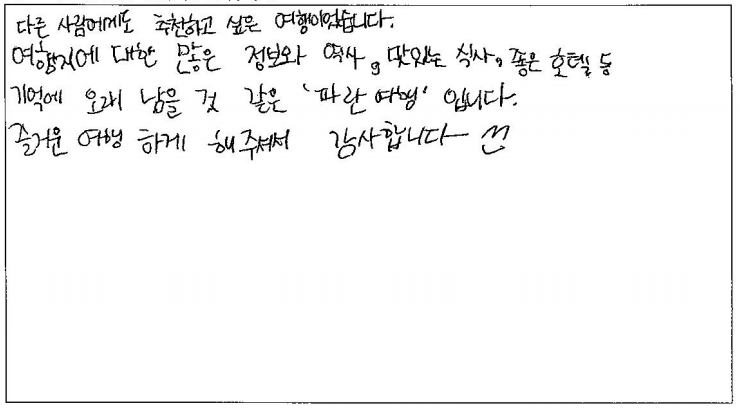 다른 사람에게도 추천하고 싶은 여행이었습니다.
여행지에 대한 많은 정보와 역사, 맛있는 식사, 좋은 호텔 등
기억에 오래 남을 것 같은 '파란여행' 입니다.
즐거운 여행 하게 해주셔서 감사합니다